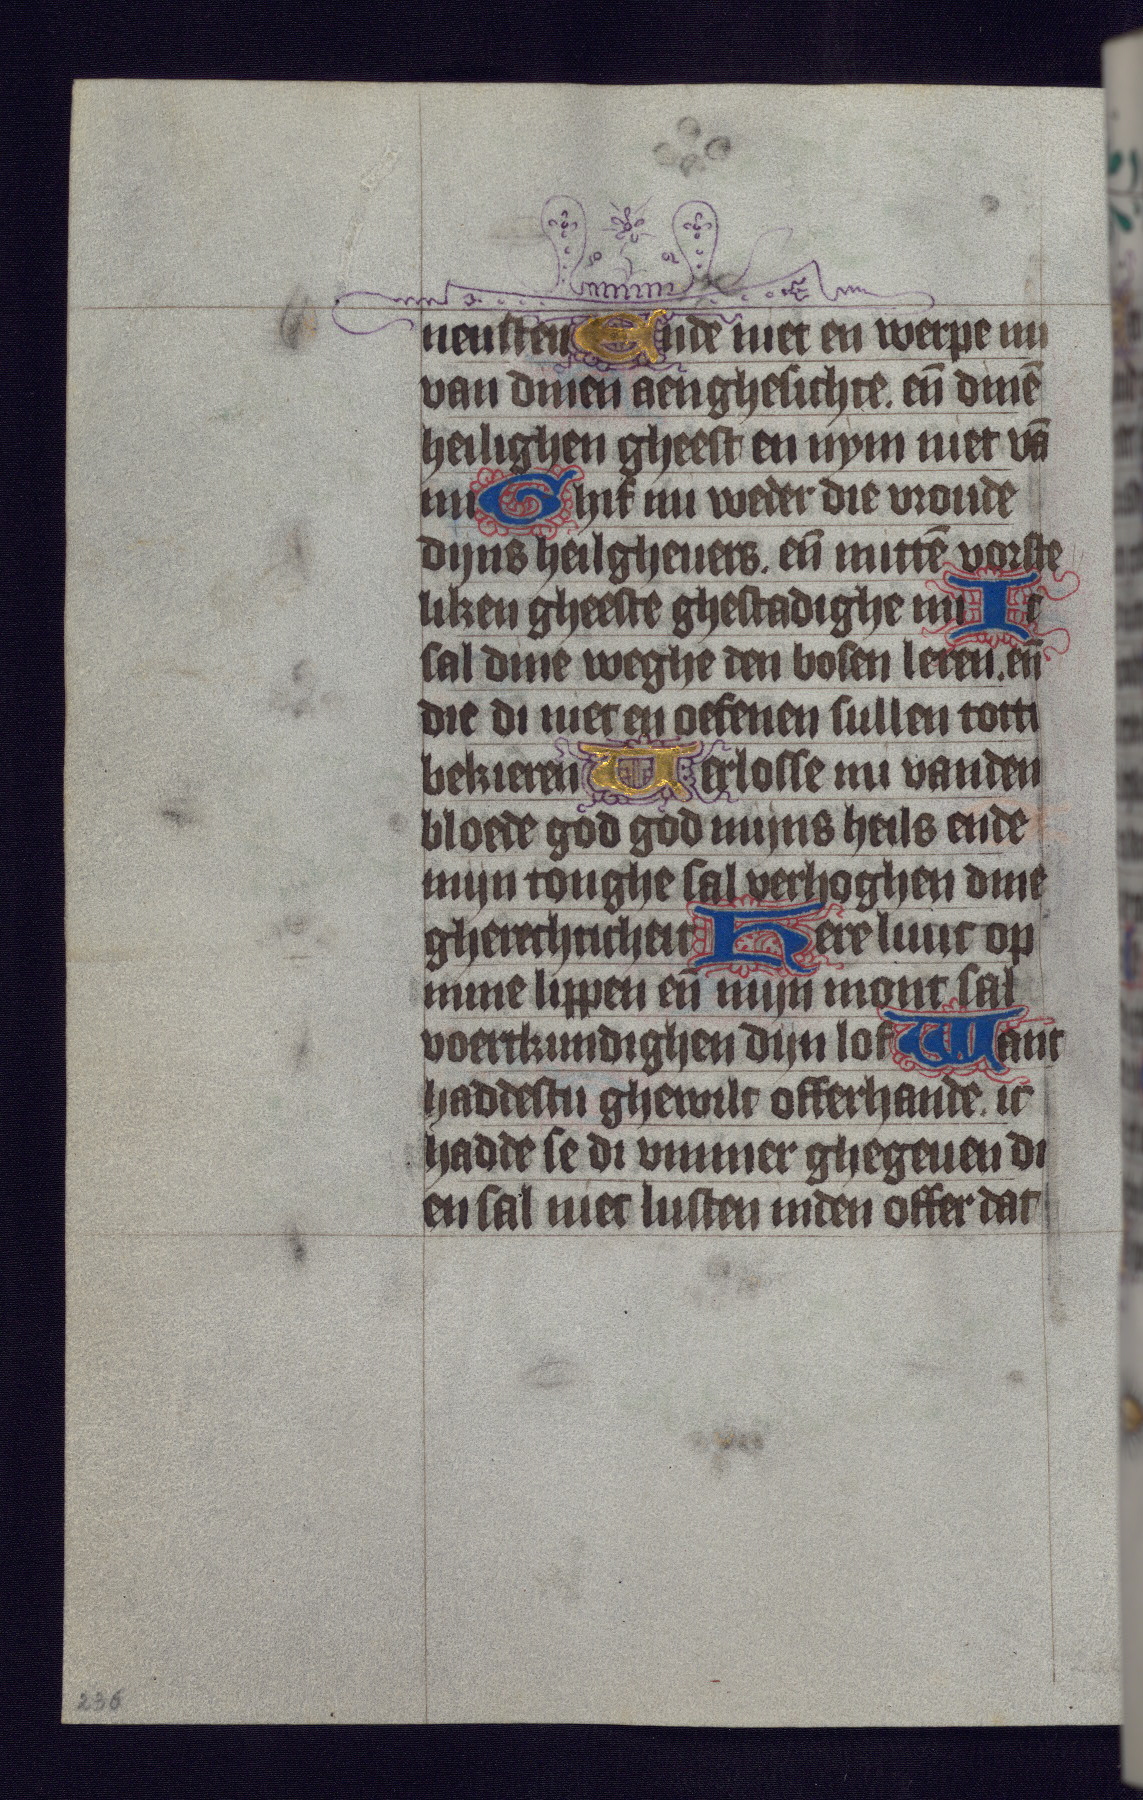 neusten Ende niet en werpe mi
van dinen aenghesichte. en̄ dinē
heilighen gheest en nym niet vā
mi Ghif mi weder die vroude
dijns heilgheuers. en̄ mittē vorste
liken gheeste ghestadighe mi Ic
sal dine weghe den bosen leren. en̄
die di niet en oefenen sullen totti
bekieren Verlosse mi vanden
bloede god god mijns heils ende
mijn tonghe sal verhoghen dine
gherechticheit Here luut op
mine lippen en̄ mijn mont sal
voertkundighen dijn lof Want
haddestu ghewilt offerhande. ic
hadde se di ummer ghegeuen di
en sal niet lusten inden offer dat
236